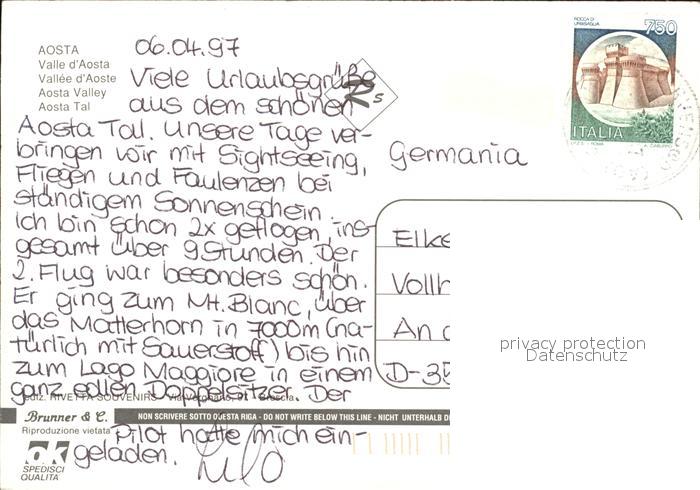 AOSTA
Valle d'Aosta
Vallée d'Aoste
Aosta Valley
Aosta Tal
06.04.97
Viele Urlaubsgrüße
aus dem schönen
Aosta Tal. Unsere Tage ver-
bringen wir mit Sightseeing,
Fliegen und Faulenzen bei
ständigem Sonnenschein.
Ich bin schon 2x geflogen, ins-
gesamt über 9 Stunden. Der
2. Flug war besonders schön.
Er ging zum Mt. Blanc, über
das Matterhorn in 7000m (na-
türlich mit Sauerstoff) bis hin
zum Lago Maggiore in einem
ganz edlen Doppelsitzer. Der
Pilot hatte mich ein-
geladen.
Rs
ROCCA DI
URBISAGLIA
750
ITALIA
Germania
Elke
Vollh
An d
D-35
privacy protection
Datenschutz
Ediz. RIVETTA SOUVENIRS
Brescia
Brunner & C.
NON SCRIVERE SOTTO QUESTA RIGA - DO NOT WRITE BELOW THIS LINE - NICHT UNTERHALB D
Riproduzione vietata
ok
SPEDISCI
QUALITÀ